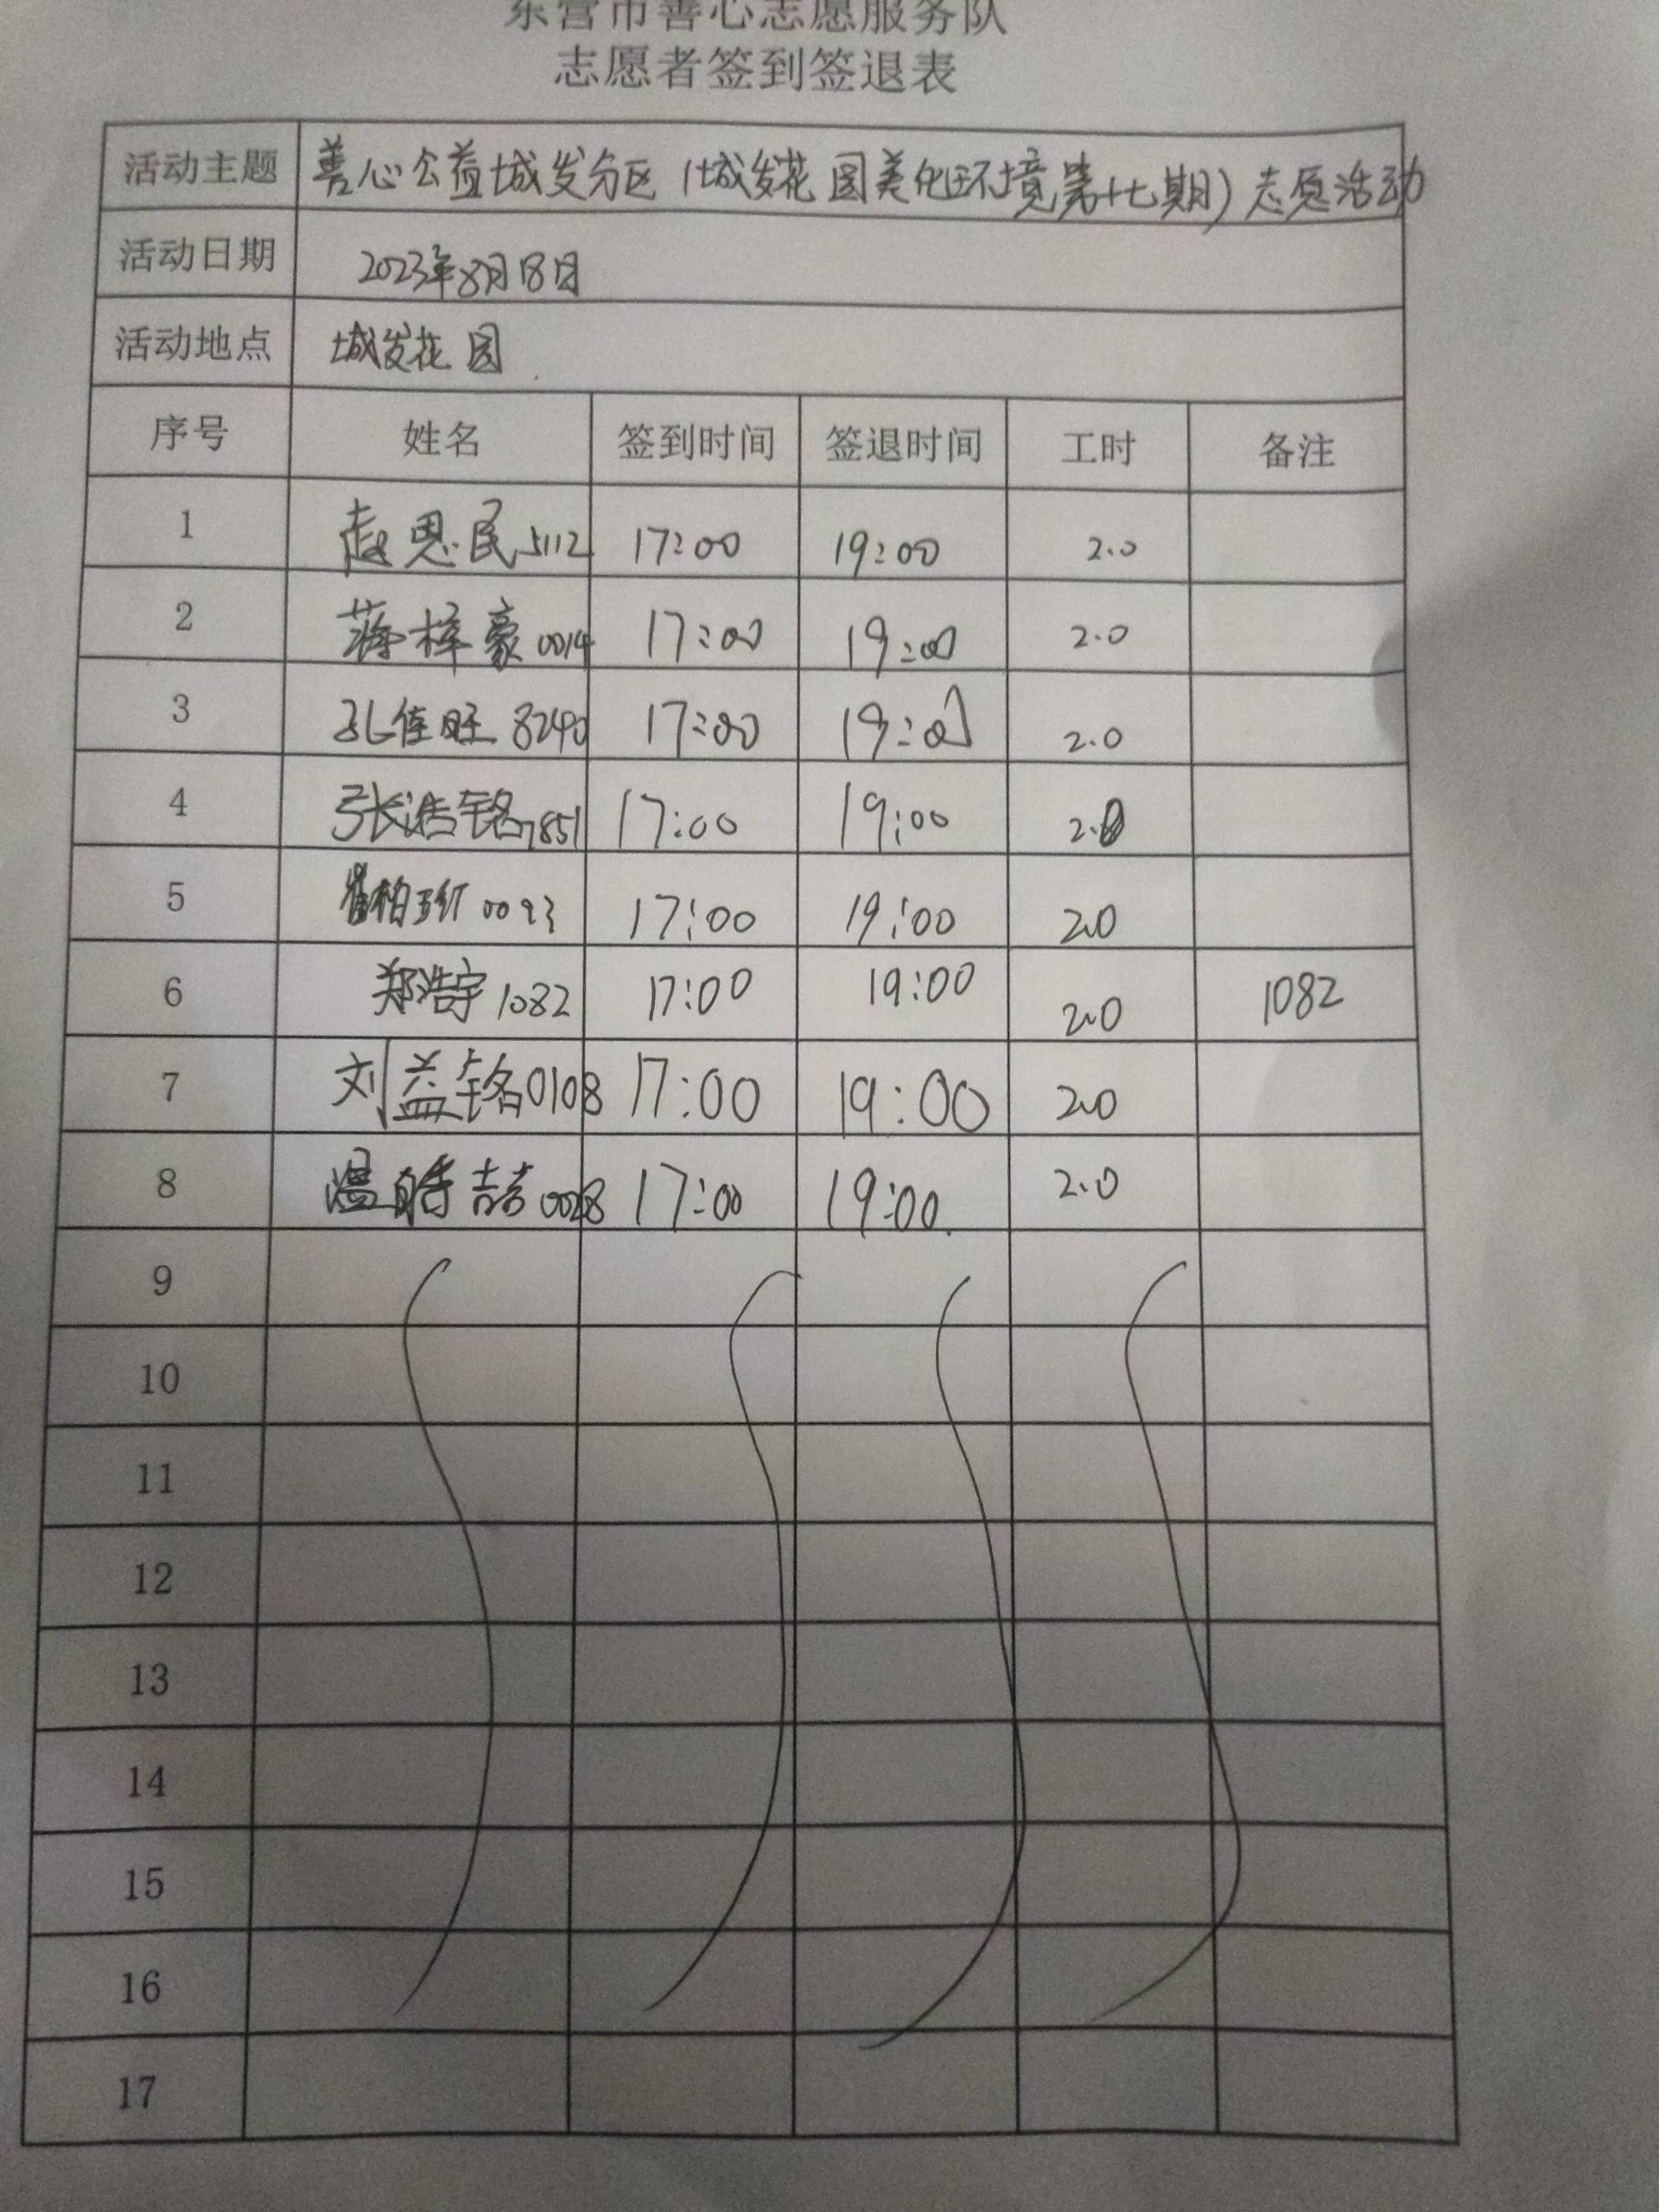 东营市善心志愿服务队
志愿者签到签退表
活动主题 善心公益城发分区（城发花园美化环境第十七期）志愿活动
活动日期 2023年8月18日
活动地点 城发花园
序号 姓名 签到时间 签退时间 工时 备注
1 赵思民5112 17:00 19:00 2.0
2 蒋梓豪0014 17:00 19:00 2.0
3 孔佳旺 8240 17:00 19:00 2.0
4 张浩铭7851 17:00 19:00 2.0
5 柏 0093 17:00 19:00 2.0
6 郑浩宇1082 17:00 19:00 2.0 1082
7 刘益铭0108 17:00 19:00 2.0
8 温 喆0028 17:00 19:00 2.0
9
10
11
12
13
14
15
16
17